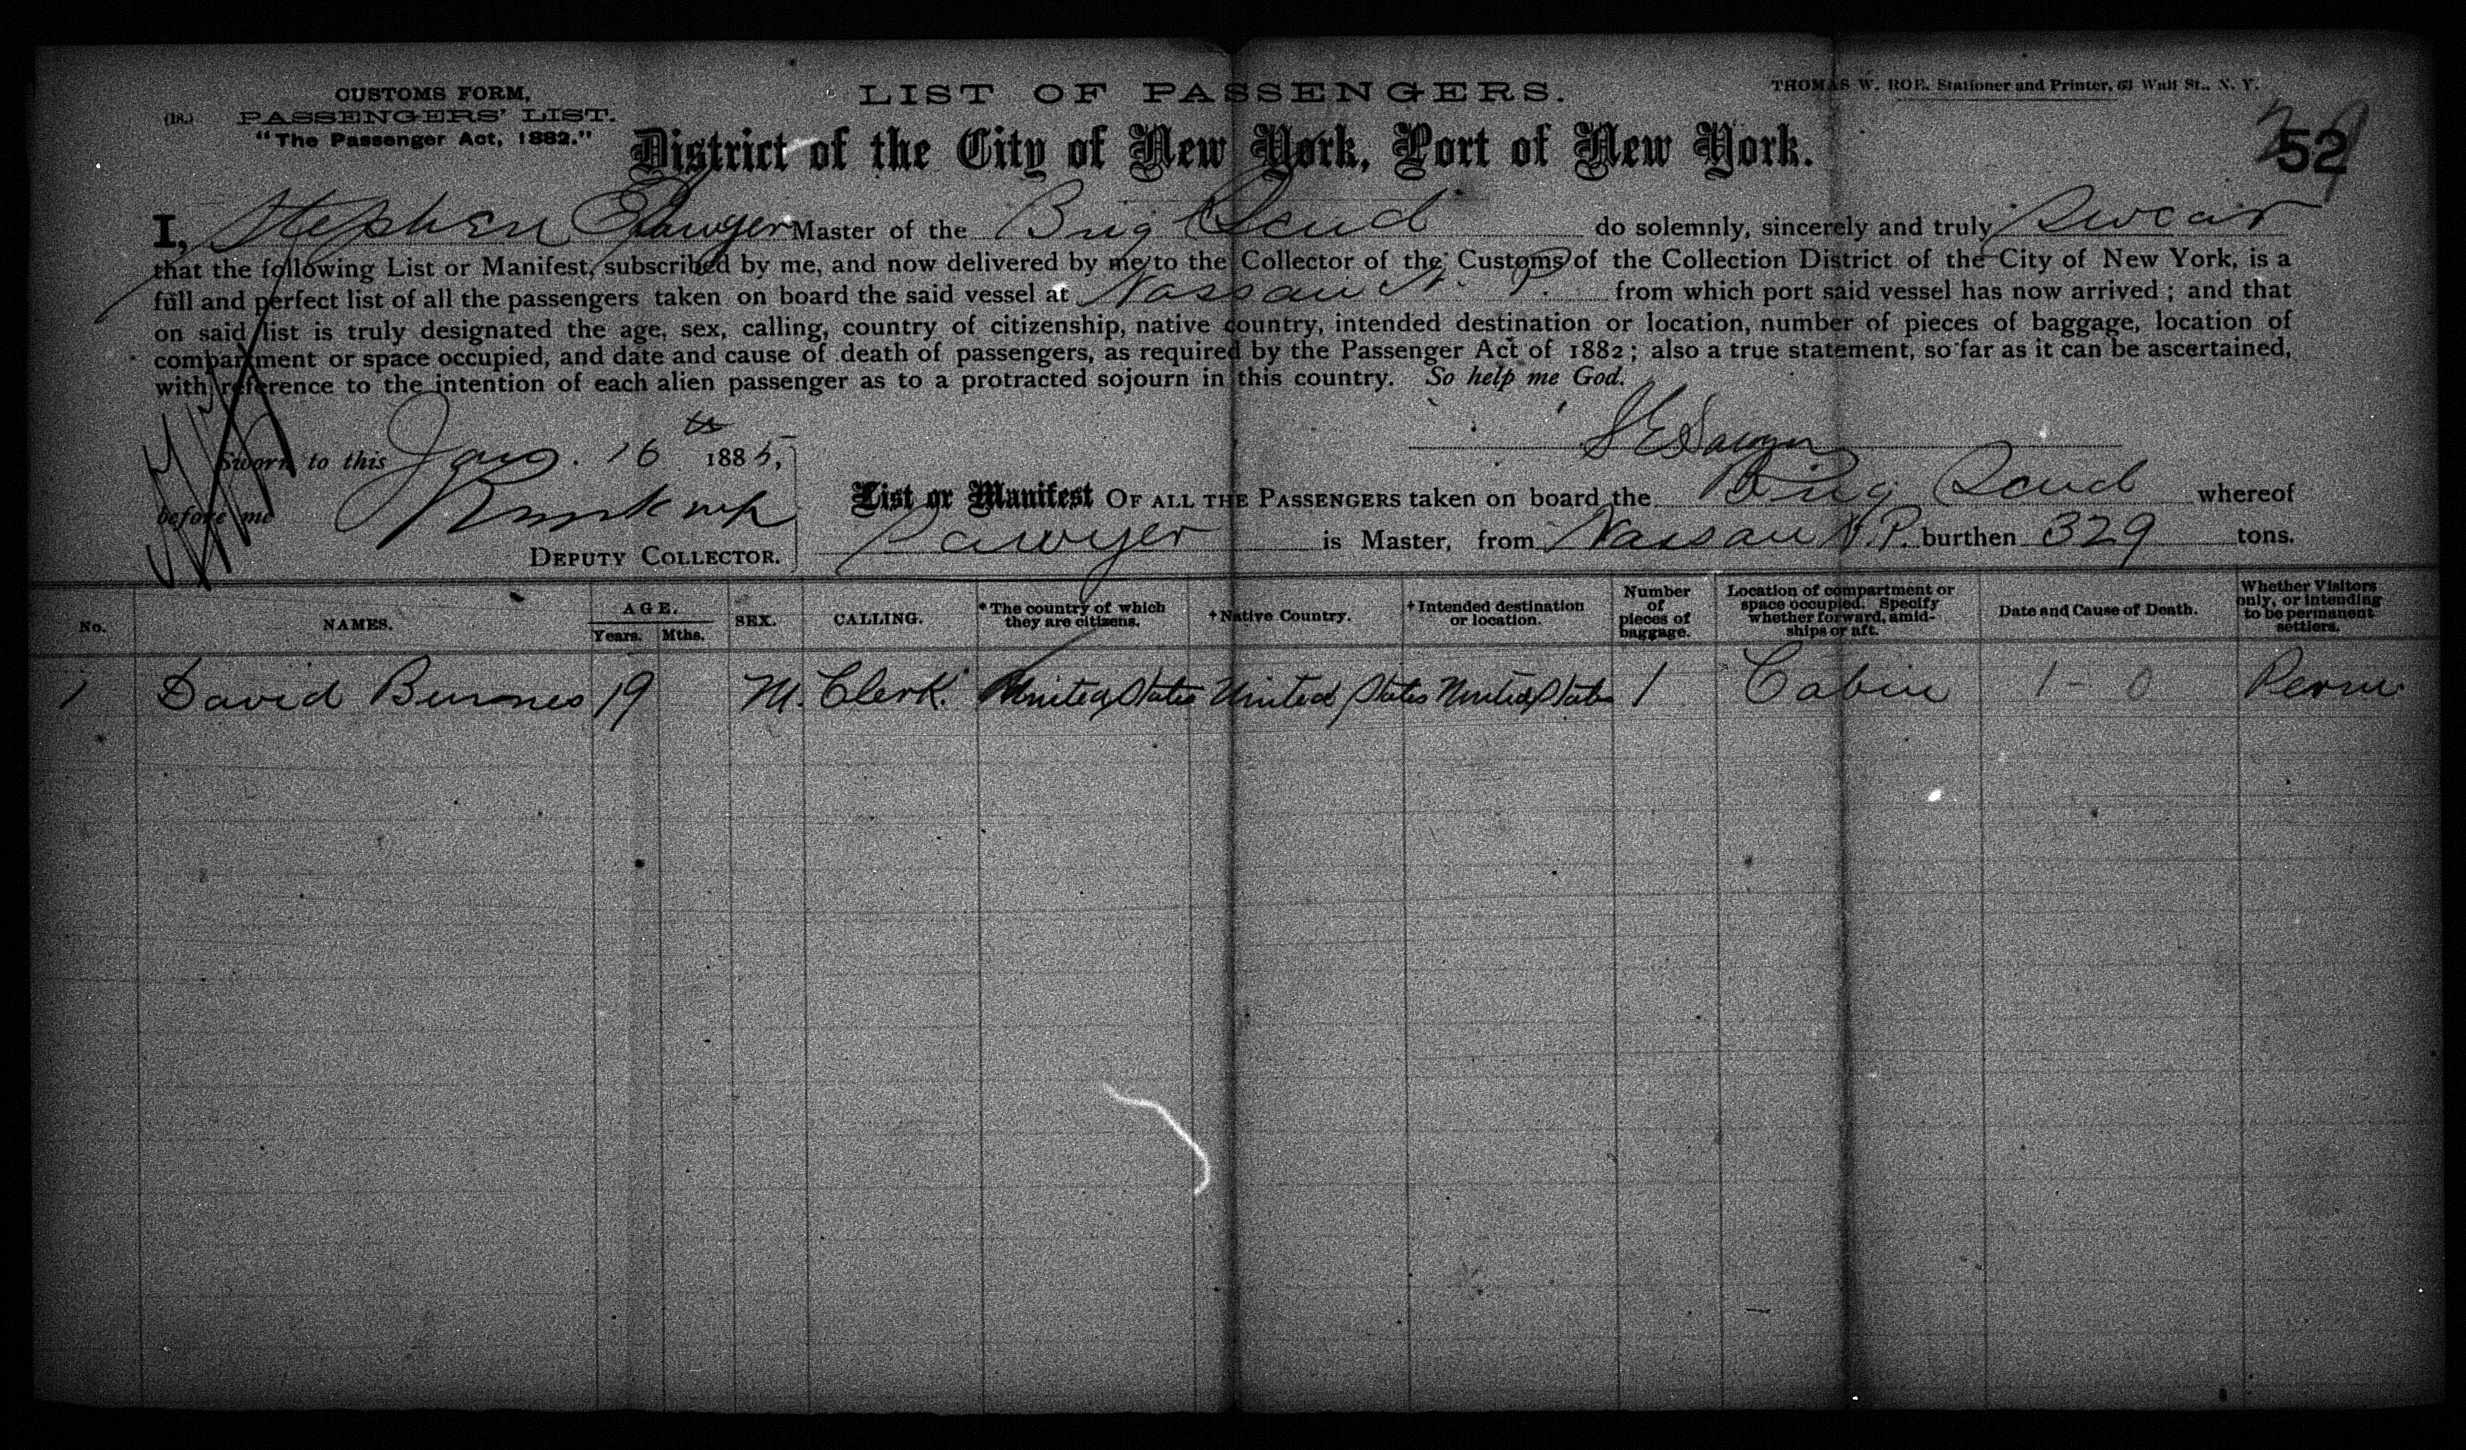 CUSTOMS FORM,
(18.) PASSENGERS' LIST.
"The Passenger Act, 1882."
LIST OF PASSENGERS.
THOMAS W. ROE, Stationer and Printer, 61 Wall St., N. Y.
District of the City of New York, Port of New York.
52
I, Stephen E Sawyer Master of the Brig Scud do solemnly, sincerely and truly swear
that the following List or Manifest, subscribed by me, and now delivered by me to the Collector of the Customs of the Collection District of the City of New York, is a
full and perfect list of all the passengers taken on board the said vessel at Nassau N. P. from which port said vessel has now arrived; and that
on said list is truly designated the age, sex, calling, country of citizenship, native country, intended destination or location, number of pieces of baggage, location of
compartment or space occupied, and date and cause of death of passengers, as required by the Passenger Act of 1882; also a true statement, so far as it can be ascertained,
with reference to the intention of each alien passenger as to a protracted sojourn in this country. So help me God.
S E Sawyer
Sworn to this Jany. 16 th 1885,
before me
DEPUTY COLLECTOR.
List or Manifest OF ALL THE PASSENGERS taken on board the Brig Scud whereof
Sawyer is Master, from Nassau N.P. burthen 329 tons.
No. NAMES. AGE. Years. Mths. SEX. CALLING. * The country of which they are citizens. † Native Country. † Intended destination or location. Number of pieces of baggage. Location of compartment or space occupied. Specify whether forward, amidships or aft. Date and Cause of Death. Whether Visitors only, or intending to be permanent settlers.
1 David Burnes 19 M. Clerk. United States United States United States 1 Cabin 1 - 0